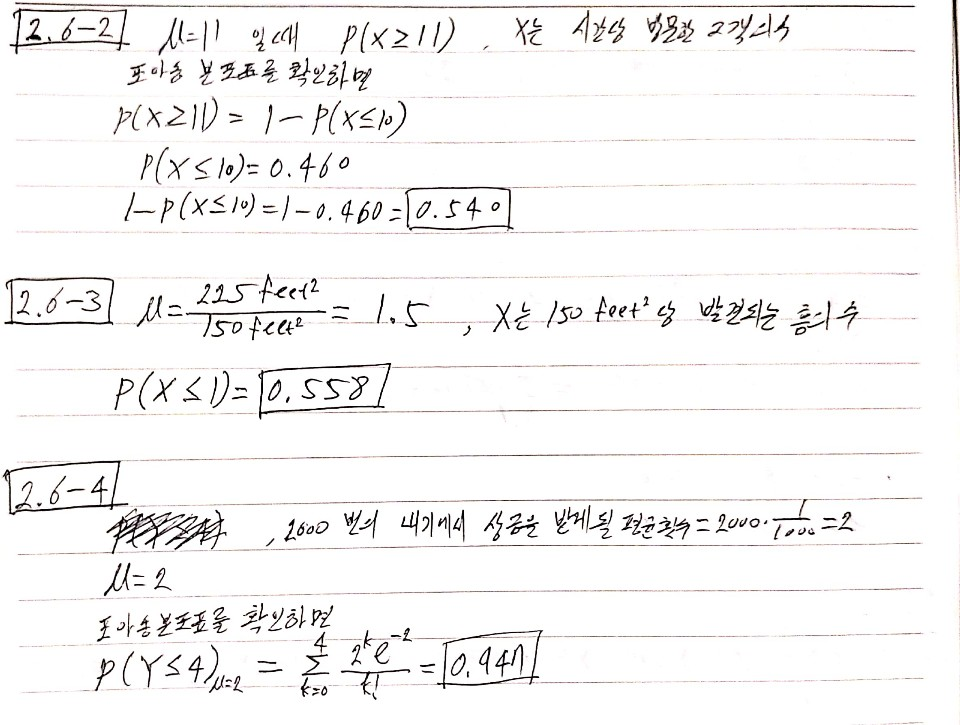 2.6-2 μ=11 일때 P(X≥11), X는 시간당 방문한 고객의 수
포아송 분포표를 확인하면
P(X≥11) = 1-P(X≤10)
P(X≤10)=0.460
1-P(X≤10)=1-0.460=0.540
2.6-3 μ=225 feet²/150 feet² = 1.5, X는 150 feet²당 발견되는 흠의 수
P(X≤1)=0.558
2.6-4
, 2000 번의 내기에서 상금을 받게될 평균횟수=2000·1/1000=2
μ=2
포아송분포표를 확인하면
P(Y≤4)μ=2 = Σ_{k=0}^{4} 2^k e^{-2}/k! = 0.947